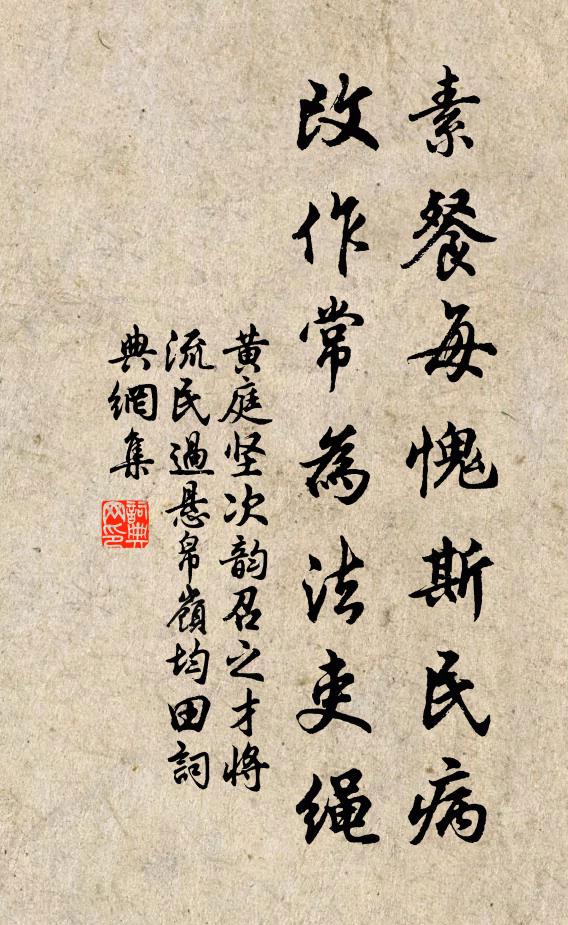 素餐每愧斯民病
改作常為法吏绳
黄庭坚次韵召之才将
流民過悬帛嶺均田詞
典網集
詞典
网印